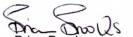 Brian Brooks